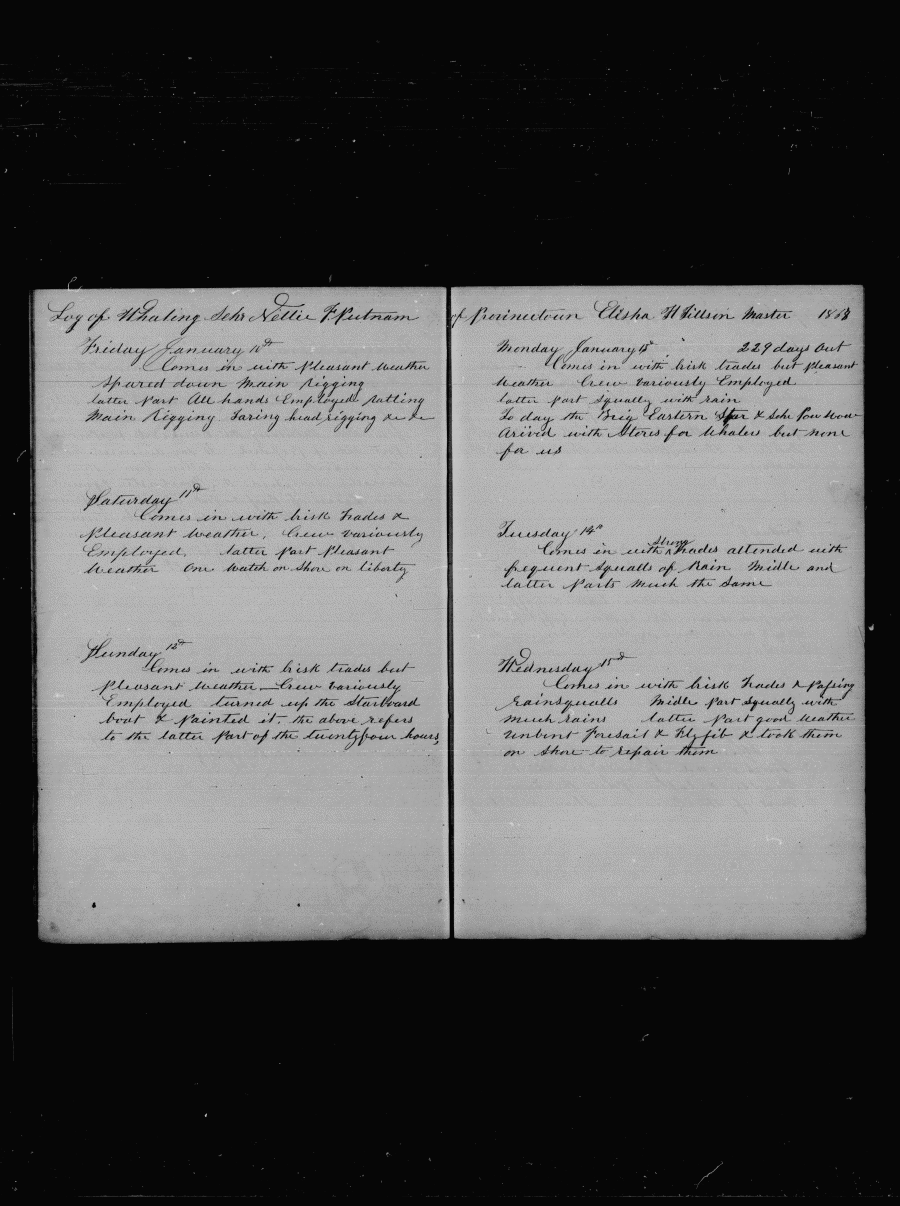 Log of Whaling Schr Nettie F. Putnam
Friday January 10th
Comes in with Pleasant Weather
Spared down Main Rigging
latter Part All hands Employed ratling
Main Rigging Taring head rigging &c &c
Saturday 11th
Comes in with brisk trades &
Pleasant Weather, Crew variously
Employed, latter Part Pleasant
Weather One Watch on Shore on liberty
Sunday 12th
Comes in with brisk trades but
Pleasant Weather Crew variously
Employed turned up the Starboard
boat & Painted it, the above refers
to the latter Part of the twentyfour hours,
of Provincetown Elisha H Tillson Master
Monday January 13th 229 days Out
Comes in with brisk trades but Pleasant
Weather Crew variously Employed
latter Part Squally with rain
To day the Brig Eastern Star & Schr Pow Wow
Arived with Stores for Whalers but none
for us
Tuesday 14th
Comes in with Strong trades attended with
frequent Squalls of Rain Midle and
latter Parts Much the Same
Wednesday 15th
Comes in with brisk trades & Passing
rainsqualls Midle Part Squally with
much rains latter Part good Weather
Unbent Foresail & Flyjib & took them
on Shore to repair them